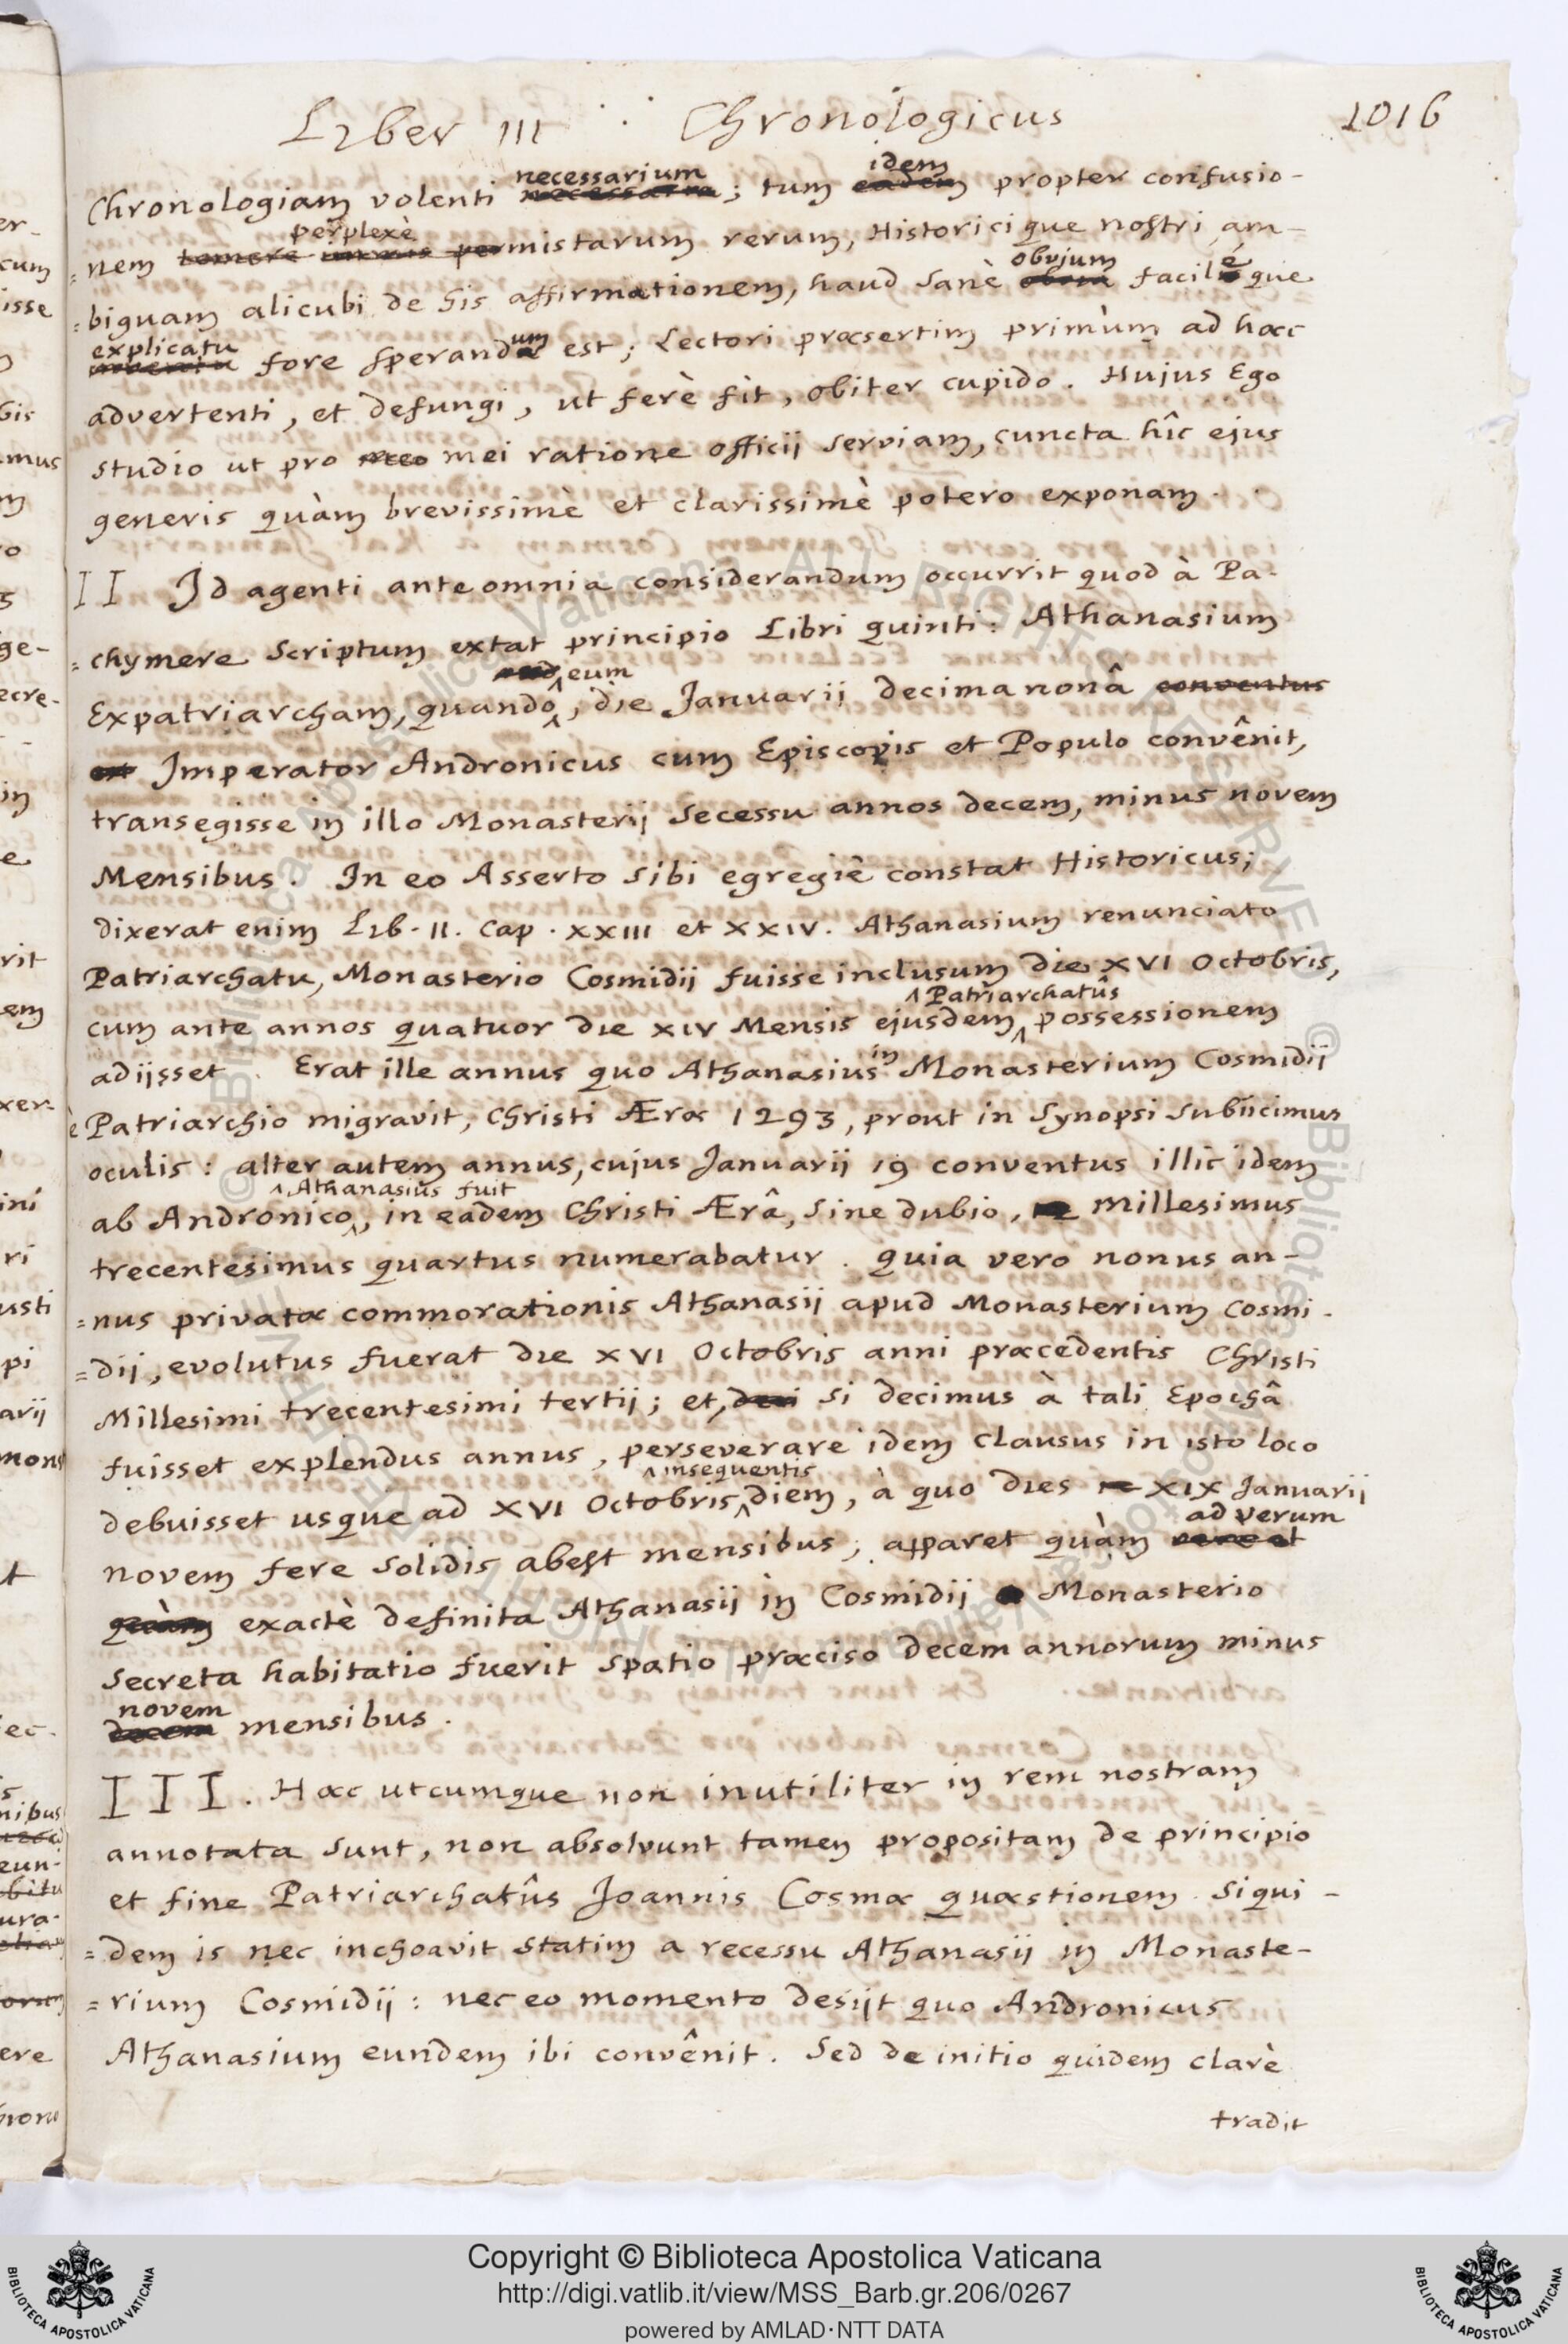 Liber III Chronologicus 1016
necessarium idem
Chronologiam volenti ; tum eadem propter confusio-
perplexè
=nem temere permistarum rerum, Historicique nostri am-
obvium é
=biguam alicubi de his affirmationem, haud sanè obvia facilisque
explicatu um
fore sperand est; Lectori præsertim primùm ad hæc
advertenti, et defungi, ut ferè fit, obiter cupido. Hujus Ego
studio ut pro meo mei ratione officij serviam, cuncta hîc ejus
generis quàm brevissimè et clarissimè potero exponam.
II Id agenti ante omnia considerandum occurrit quod à Pa-
=chymere scriptum extat principio Libri quinti: Athanasium
eum
Expatriarcham, quando, die Januarii decimanonâ conventus
est Imperator Andronicus cum Episcopis et Populo convênit,
transegisse in illo Monasterij Secessu annos decem, minus novem
Mensibus. In eo Asserto sibi egregiè constat Historicus;
dixerat enim Lib. II. Cap. XXIII et XXIV. Athanasium renunciato
Patriarchatu, Monasterio Cosmidij fuisse inclusum die XVI Octobris,
Patriarchatûs
cum ante annos quatuor die XIV Mensis ejusdem possessionem
adijsset. Erat ille annus quo Athanasius in Monasterium Cosmidij
è Patriarchio migravit, Christi Æræ 1293, prout in Synopsi subiicimus
oculis: alter autem annus, cujus Januarij 19 conventus illic idem
Athanasius fuit
ab Andronico, in eadem Christi Ærâ, sine dubio, Millesimus
trecentesimus quartus numerabatur. quia vero nonus an-
=nus privatæ commorationis Athanasij apud Monasterium Cosmi-
=dij, evolutus fuerat die XVI Octobris anni præcedentis Christi
Millesimi trecentesimi tertij; et, deci si decimus à tali Epochâ
fuisset explendus annus, perseverare idem clausus in isto loco
insequentis
debuisset usque ad XVI Octobris diem, à quo dies XIX Januarij
ad verum
novem fere solidis abest mensibus; apparet quàm vere et
quàm exactè definita Athanasij in Cosmidij Monasterio
Secreta habitatio fuerit spatio præciso decem annorum minus
novem
decem mensibus.
III. Hæc utcumque non inutiliter in rem nostram
annotata sunt, non absolvunt tamen propositam de principio
et fine Patriarchatûs Joannis Cosmæ quæstionem. Siqui-
=dem is nec inchoavit statim a recessu Athanasij in Monaste-
=rium Cosmidij: nec eo momento desijt quo Andronicus
Athanasium eundem ibi convênit. Sed de initio quidem clarè
tradit
Copyright © Biblioteca Apostolica Vaticana
http://digi.vatlib.it/view/MSS_Barb.gr.206/0267
powered by AMLAD·NTT DATA
BIBLIOTECA APOSTOLICA VATICANA
BIBLIOTECA APOSTOLICA VATICANA